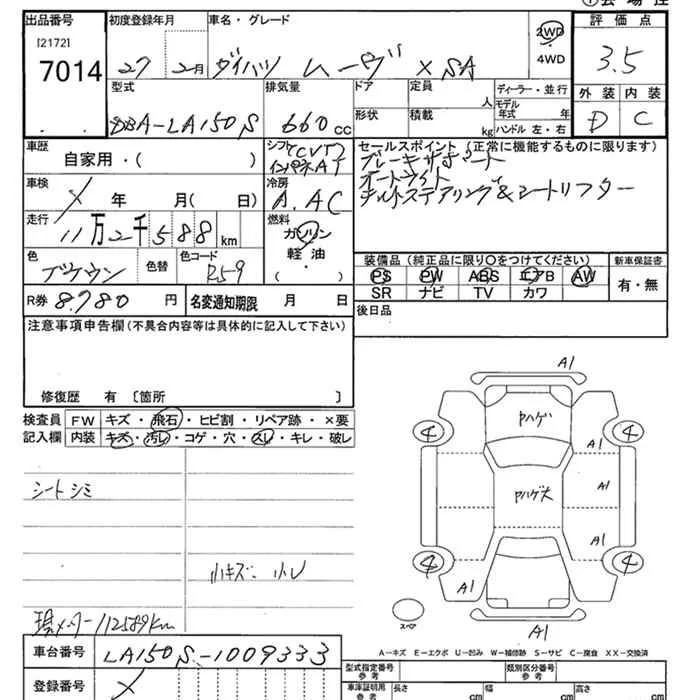 ①会場控
出品番号
初度登録年月
車名・グレード
2WD
・
4WD
評価点
[2172]
7014
27 2月
ダイハツ ムーヴ X SA
3.5
型式
排気量
ドア
定員
人
ディーラー・並行
モデル
年式 年
外装 内装
DBA-LA150S
660 CC
形状
積載
kg
ハンドル 左・右
D C
車歴
自家用・( )
シフト CVT
インパネAT
セールスポイント (正常に機能するものに限ります)
ブレーキサポート
オートライト
チルトステアリング&シートリフター
車検
X 年 月( 日)
冷房
A.AC
走行
11万2千588km
燃料
ガソリン
軽油
( )
色
ブラウン
色替
色コード
R59
装備品 (純正品に限り○をつけてください)
PS PW ABS エアB AW
SR ナビ TV カワ
新車保証書
有・無
R券 8,780 円
名変通知期限 月 日
後日品
注意事項申告欄 (不具合内容等は具体的に記入して下さい)
修復歴 有 〔箇所 〕
検査員 FW キズ・飛石・ヒビ割・リペア跡・×要
記入欄 内装 キズ・汚レ・コゲ・穴・スレ・キレ・破レ
シートシミ
小キズ 小U
現メーター112589km
A1
Pハゲ
4 4
A1
Pハゲ大
A1
A1
4 4
A1
スペア
A1
A-キズ E-エクボ U-凹み W-補修跡 S-サビ C-腐食 XX-交換済
車台番号
LA150S-1009333
登録番号
X
型式指定番号
参考
類別区分番号
参考
車庫証明用
参考
長さ cm
幅 cm
高さ cm